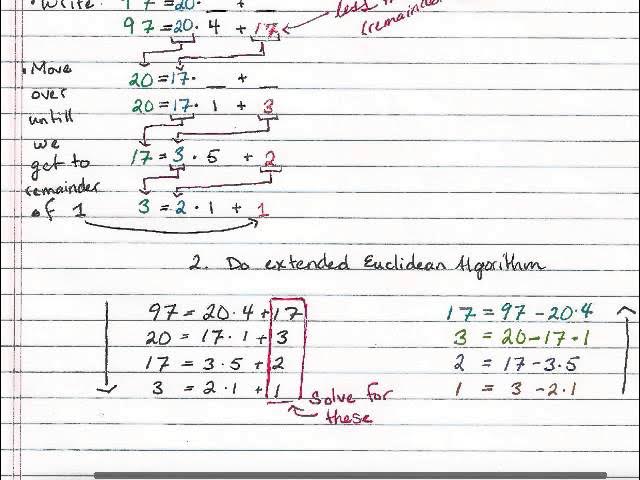 • Write: 97=20·_ + _
less
97=20·4 + 17
(remainder
• Move 20=17·_ + _
over 20=17·1 + 3
untill
we
get to 17=3·5 + 2
remainder
of 1 3=2·1+1
2. Do extended Euclidean Algorithm
97=20·4+17 17=97-20·4
20=17·1+3 3=20-17·1
17=3·5+2 2=17-3·5
3=2·1+1 1=3-2·1
Solve for
these